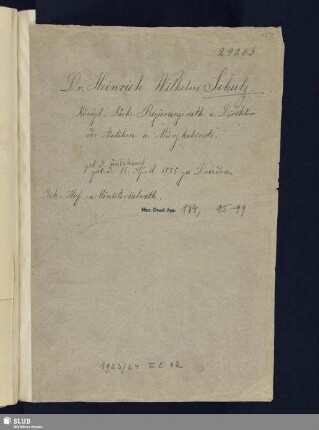 29263
Dr. Heinrich Wilhelm Schulz.
Königl. Sächs. Regierungsrath u. Direktor
der Antiken u. Münzkabinets.
gest. d. 15. April 1855 zu Dresden.
Geh. Hof- u. Ministerialrath.
Mscr. Dresd. App. 184, 95-99
1923/24 III E 12
SLUB
Wir führen Wissen.